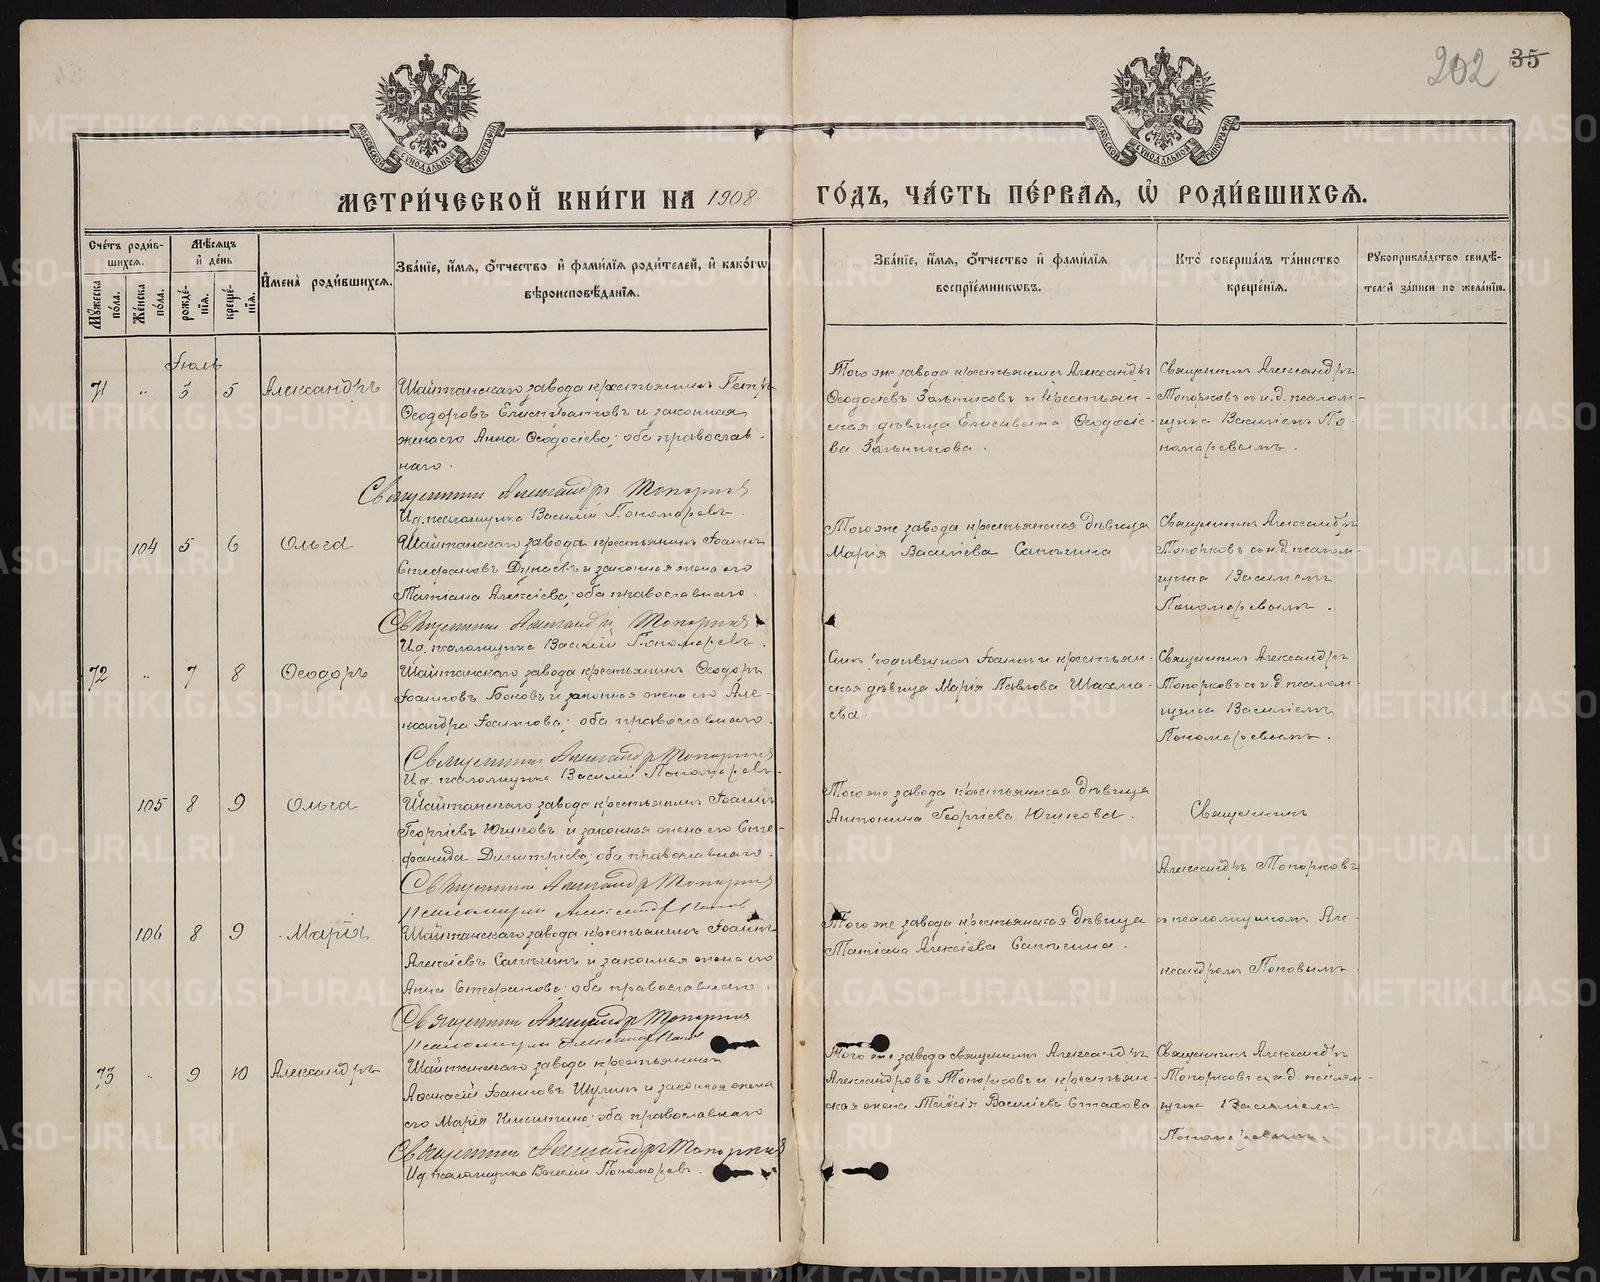 202 35
МОСКОВСКОЙ СѴНОДАЛЬНОЙ ТИПОГРАФІИ
МОСКОВСКОЙ СѴНОДАЛЬНОЙ ТИПОГРАФІИ
МЕТРИ́ЧЕСКОЙ КНИ́ГИ НА 1908 ГО́ДЪ, ЧА́СТЬ ПЕ́РВАЯ, Ѡ҆ РОДИ́ВШИХСЯ.
Сче́тъ роди́в-
шихся.
Мꙋ́жеска по́ла.
Же́нска по́ла.
Мѣ́сяцъ
и҆ де́нь
рожде́-
нїя.
креще́-
нїя.
И҆мена̀ роди́вшихся.
Зва́нїе, и҆́мя, ѻ҆́тчество и҆ фами́лїя роди́телей, и҆ како́гѡ
вѣроисповѣ́данїя.
Зва́нїе, и҆́мя, ѻ҆́тчество и҆ фами́лїя
воспрїе́мникѡвъ.
Кто̀ соверша́лъ та́инство
креще́нїя.
Рꙋкоприкла́дство свидѣ́-
телей за́писи по жела́нїю.
Іюль
71 " 3 5 Александръ
Шайтанскаго завода крестьянинъ Петръ
Ѳеодоровъ и законная
жена его Анна Ѳеодосіева; оба православ-
наго.
Священникъ Александръ Топорковъ
И.д. псаломщика Василій Пономаревъ.
Того же завода крестьянинъ Александръ
Ѳеодосіевъ и крестьян-
ская дѣвица Елисавета Ѳеодосіе-
ва
Священникъ Александръ
Топорковъ съ и.д. псалом-
щика Василіемъ По-
номаревымъ.
104 5 6 Ольга
Шайтанскаго завода крестьянинъ Іоаннъ
Стефановъ Дунаевъ и законная жена его
Татіана Алексіева; оба православнаго.
Священникъ Александръ Топорковъ
И.д. псаломщика Василій Пономаревъ.
Того же завода крестьянская дѣвица
Марія Василіева Сапѣгина
Священникъ Александръ
Топорковъ съ и.д. псалом-
щика Василіемъ
Пономаревымъ.
72 " 7 8 Ѳеодоръ
Шайтанскаго завода крестьянинъ Ѳеодоръ
Іоанновъ Боковъ и законная жена его Але-
ксандра Іоаннова; оба православнаго.
Священникъ Александръ Топорковъ
И.д. псаломщика Василій Пономаревъ.
Сынъ родившихъ Іоаннъ и крестьян-
ская дѣвица Марія Павлова Шахма-
ева.
Священникъ Александръ
Топорковъ съ и.д. псалом-
щика Василіемъ
Пономаревымъ.
105 8 9 Ольга
Шайтанскаго завода крестьянинъ Іоаннъ
Георгіевъ Югиковъ и законная жена его Сте-
фанида Димитріева; оба православнаго.
Священникъ Александръ Топорковъ
Псаломщикъ Александръ Поповъ
Того же завода крестьянская дѣвица
Антонина Георгіева Югикова.
Священникъ
Александръ Топорковъ
106 8 9 Марія
Шайтанскаго завода крестьянинъ Іоаннъ
Алексіевъ Сапѣгинъ и законная жена его
Анна Стефанова; оба православнаго.
Священникъ Александръ Топорковъ
Псаломщикъ Александръ Поповъ
Того же завода крестьянская дѣвица
Татіана Алексіева Сапѣгина.
съ псаломщикомъ Але-
ксандромъ Поповымъ
73 " 9 10 Александръ
Шайтанскаго завода крестьянинъ
Аѳанасій Іоанновъ Шулинъ и законная жена
его Марія Никитина; оба православнаго
Священникъ Александръ Топорковъ
И.д. псаломщика Василій Пономаревъ.
Того же завода священникъ Александръ
Александровъ Топорковъ и крестьян-
ская жена Таисія Василіева Стахова
Священникъ Александръ
Топорковъ съ и.д. псалом-
щика Василіемъ
Пономаревымъ.
METRIKI.GASO-URAL.RU